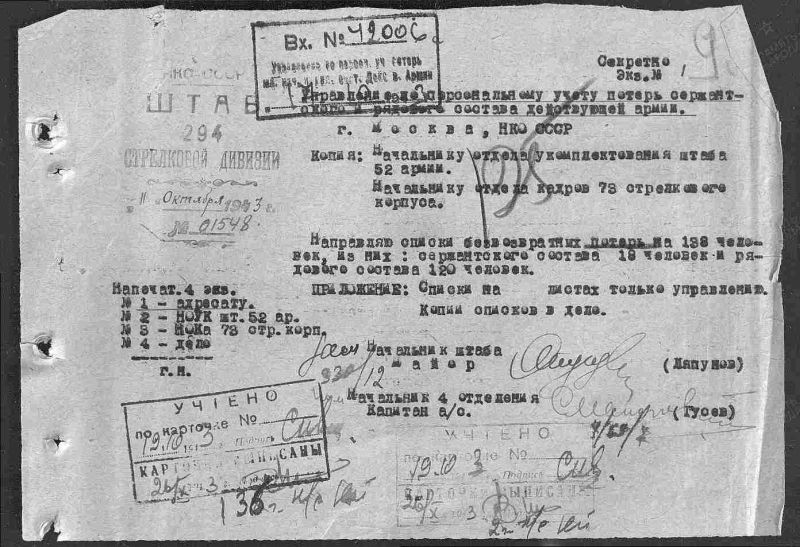 Вх. № 42006
Секретно
Экз. № 1
НКО СССР
ШТАБ
294
СТРЕЛКОВОЙ ДИВИЗИИ
11 Октября 1943 г.
№ 01548
Управление по персональному учету потерь сержант-
ского и рядового состава действующей армии.
г. Москва, НКО СССР
Копия: Начальнику отдела укомплектования штаба
52 армии.
Начальнику отдела кадров 73 стрелкового
корпуса.
Направляю списки безвозвратных потерь на 138 чело-
век, из них: сержантского состава 18 человек и ря-
дового состава 120 человек.
ПРИЛОЖЕНИЕ: Списки на листах только управлению.
Копии списков в деле.
Напечат. 4 экз.
№ 1 - адресату.
№ 2 - НОУК шт. 52 ар.
№ 3 - НОКа 73 стр. корп.
№ 4 - дело
г.н.
Начальник штаба
Майор (Ляпунов)
Начальник 4 отделения
Капитан а/с. (Гусев)
УЧТЕНО
по карточке №
19.10 3 Подпись
КАРТОЧКИ ВЫПИСАНЫ
26/X 3
136
УЧТЕНО
19.10 3 Подпись
КАРТОЧКИ ВЫПИСАНЫ
26/X